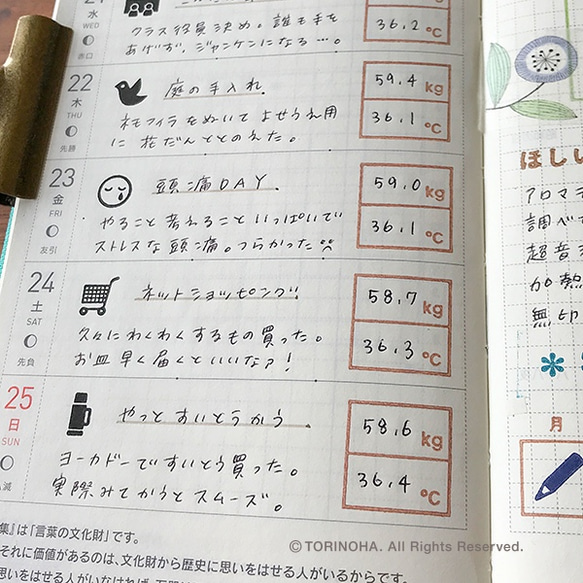 水
WED
赤口
クラス役員決め。誰も手を
あげず、ジャンケンになる…。
36.2
℃
22
木
THU
先勝
庭の手入れ
ネモフィラをぬいてよせうえ用
に花だんととのえた。
59.4
kg
36.1
℃
23
金
FRI
友引
頭痛DAY
やること考えることいっぱいで
ストレスな頭痛。つらかった
59.0
kg
36.1
℃
24
土
SAT
先負
ネットショッピング
久々にわくわくするもの買った。
お皿早く届くといいなァ!
58.7
kg
36.3
℃
25
日
SUN
滅
やっとすいとうかう
ヨーカドーですいとう買った。
実際みてかうとスムーズ。
58.6
kg
36.4
℃
集』は「言葉の文化財」です。
それに価値があるのは、文化財から歴史に思いをはせる人がいるからです。
思いをはせる人がいなければ、
ほしい
アロマデ
調べて
超音
加熱
無印
月
© TORINOHA. All Rights Reserved.